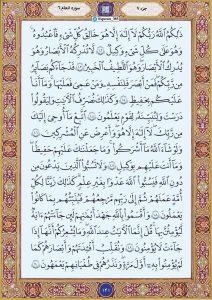 جزء ٧
سورة الانعام ٦
ذَٰلِكُمُ ٱللَّهُ رَبُّكُمْ لَآ إِلَٰهَ إِلَّا هُوَ خَٰلِقُ كُلِّ شَىْءٍ فَٱعْبُدُوهُ
وَهُوَ عَلَىٰ كُلِّ شَىْءٍ وَكِيلٌ ١٠٢ لَّا تُدْرِكُهُ ٱلْأَبْصَٰرُ وَهُوَ
يُدْرِكُ ٱلْأَبْصَٰرَ وَهُوَ ٱللَّطِيفُ ٱلْخَبِيرُ ١٠٣ قَدْ جَآءَكُم بَصَآئِرُ
مِن رَّبِّكُمْ فَمَنْ أَبْصَرَ فَلِنَفْسِهِۦ وَمَنْ عَمِىَ فَعَلَيْهَا وَمَآ أَنَا۠
عَلَيْكُم بِحَفِيظٍ ١٠٤ وَكَذَٰلِكَ نُصَرِّفُ ٱلْءَايَٰتِ وَلِيَقُولُوا۟
دَرَسْتَ وَلِنُبَيِّنَهُۥ لِقَوْمٍ يَعْلَمُونَ ١٠٥ ٱتَّبِعْ مَآ أُوحِىَ إِلَيْكَ
مِن رَّبِّكَ لَآ إِلَٰهَ إِلَّا هُوَ وَأَعْرِضْ عَنِ ٱلْمُشْرِكِينَ ١٠٦
وَلَوْ شَآءَ ٱللَّهُ مَآ أَشْرَكُوا۟ وَمَا جَعَلْنَٰكَ عَلَيْهِمْ حَفِيظًا
وَمَآ أَنتَ عَلَيْهِم بِوَكِيلٍ ١٠٧ وَلَا تَسُبُّوا۟ ٱلَّذِينَ يَدْعُونَ مِن
دُونِ ٱللَّهِ فَيَسُبُّوا۟ ٱللَّهَ عَدْوًۢا بِغَيْرِ عِلْمٍ كَذَٰلِكَ زَيَّنَّا لِكُلِّ
أُمَّةٍ عَمَلَهُمْ ثُمَّ إِلَىٰ رَبِّهِم مَّرْجِعُهُمْ فَيُنَبِّئُهُم بِمَا كَانُوا۟
يَعْمَلُونَ ١٠٨ وَأَقْسَمُوا۟ بِٱللَّهِ جَهْدَ أَيْمَٰنِهِمْ لَئِن جَآءَتْهُمْ ءَايَةٌ
لَّيُؤْمِنُنَّ بِهَا قُلْ إِنَّمَا ٱلْءَايَٰتُ عِندَ ٱللَّهِ وَمَا يُشْعِرُكُمْ أَنَّهَآ إِذَا
جَآءَتْ لَا يُؤْمِنُونَ ١٠٩ وَنُقَلِّبُ أَفْـِٔدَتَهُمْ وَأَبْصَٰرَهُمْ كَمَا
لَمْ يُؤْمِنُوا۟ بِهِۦٓ أَوَّلَ مَرَّةٍ وَنَذَرُهُمْ فِى طُغْيَٰنِهِمْ يَعْمَهُونَ ١١٠
١٤١